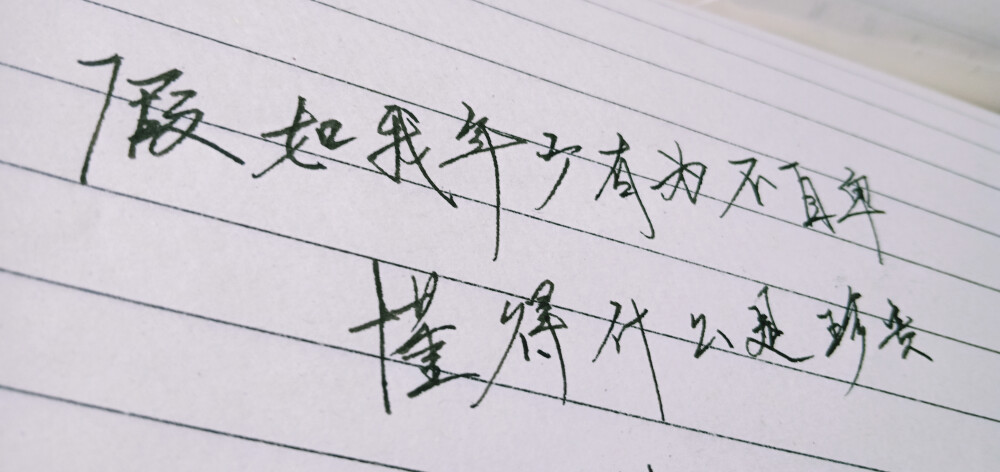 假如我年少有为不自卑
懂得什么是珍贵